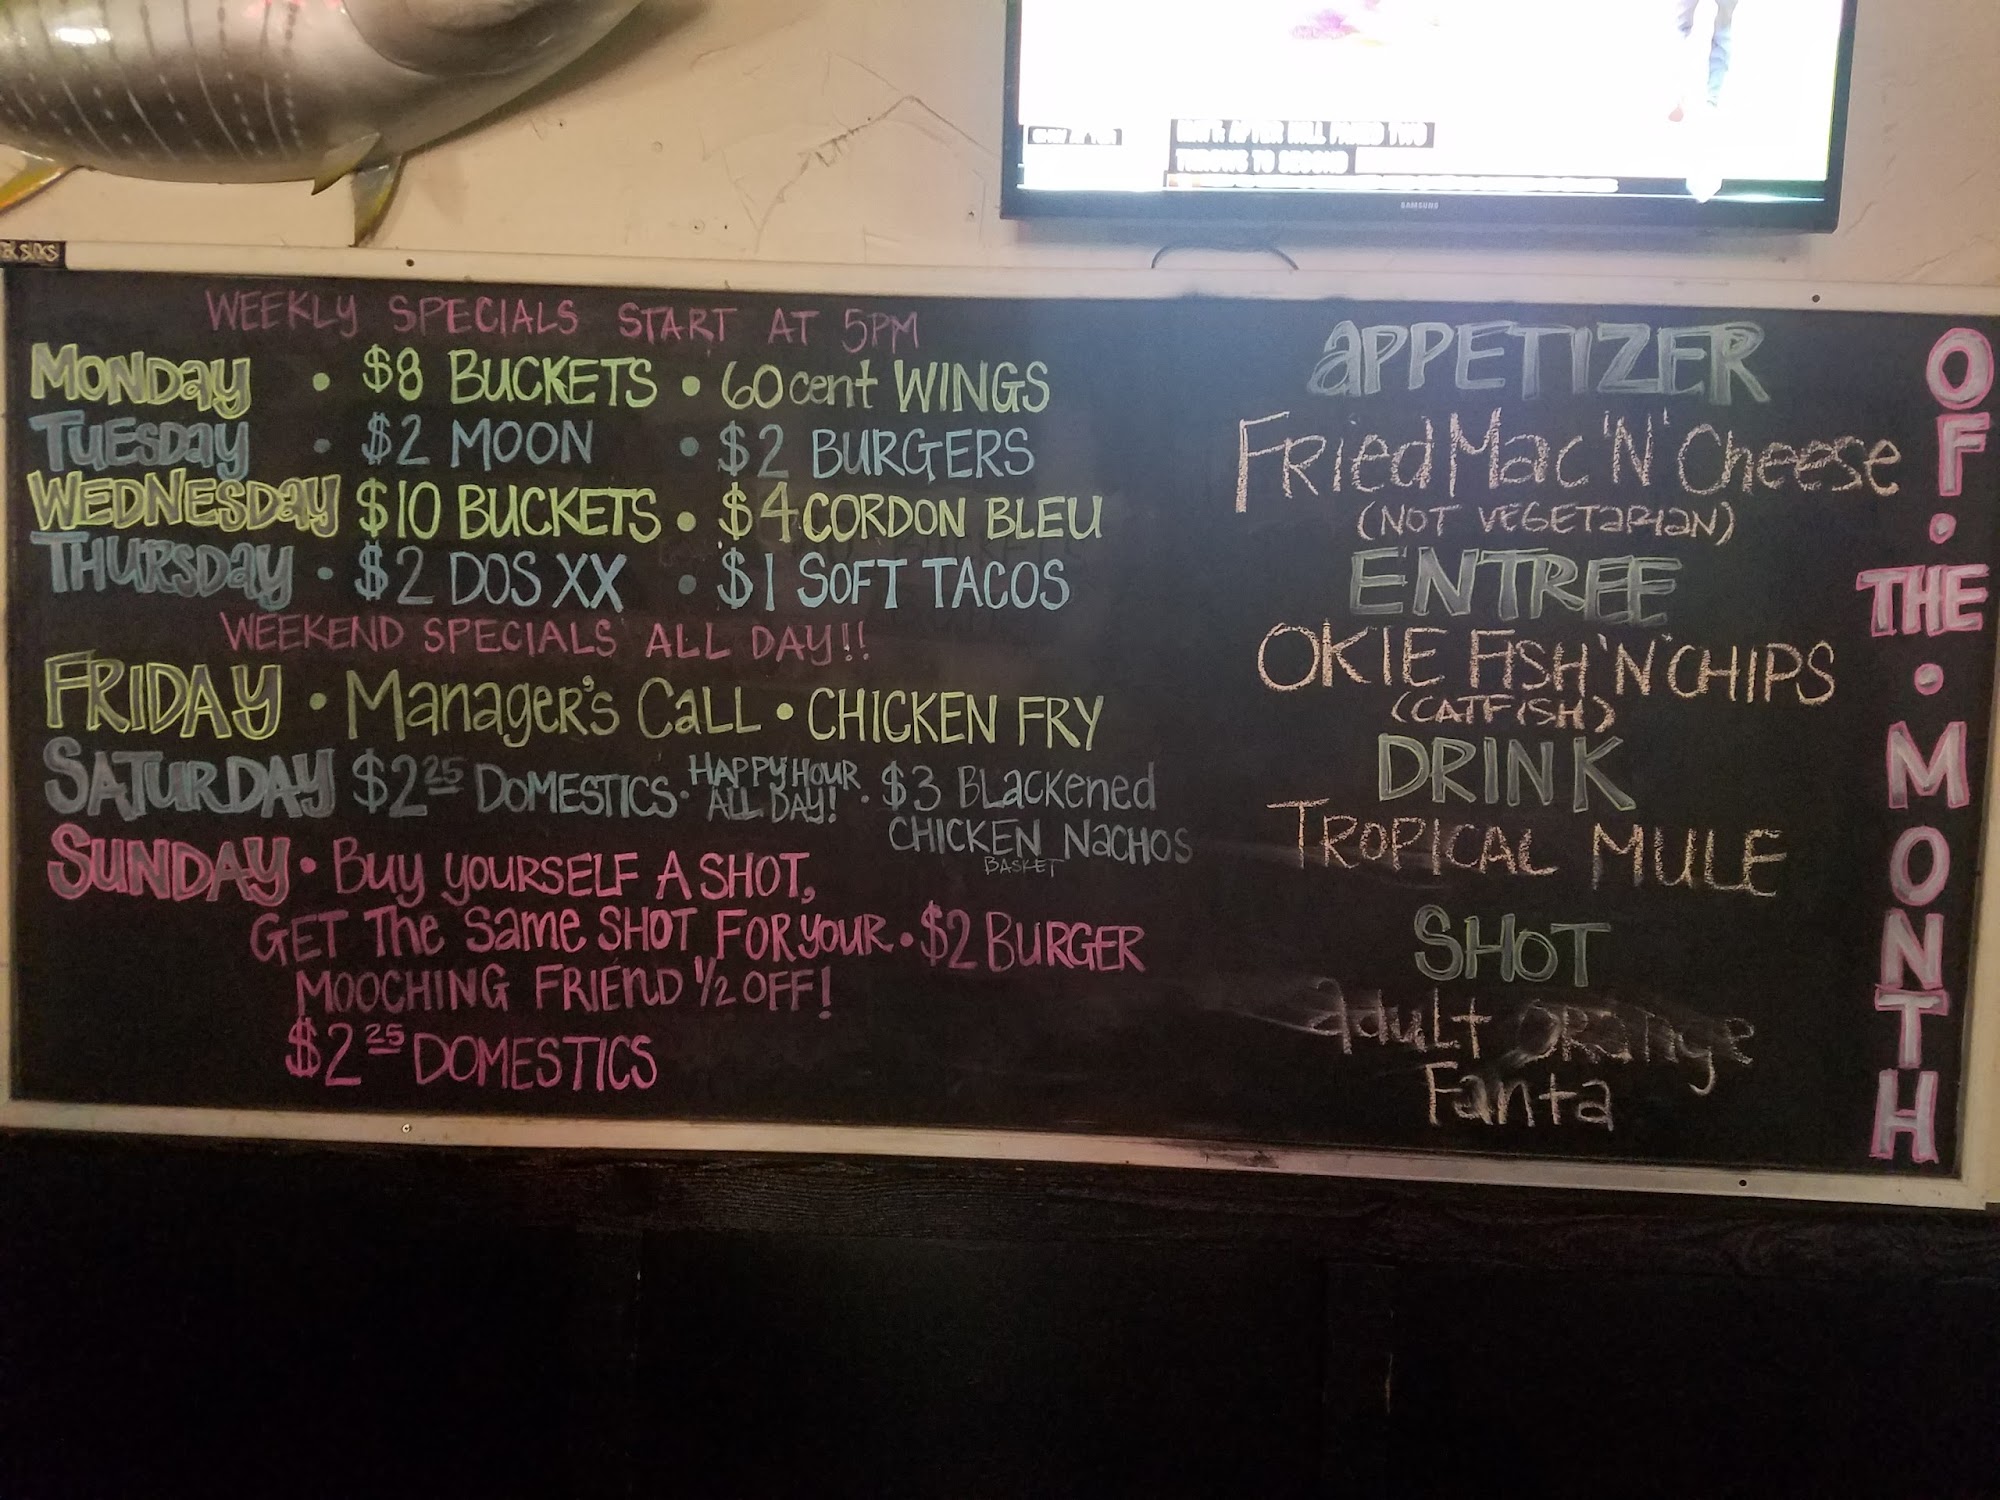 SAMSUNG
WEEKLY SPECIALS START AT 5PM
MONDAY • $8 BUCKETS • 60 cent WINGS
TUESDAY • $2 MOON • $2 BURGERS
WEDNESDAY $10 BUCKETS • $4 CORDON BLEU
THURSDAY • $2 DOS XX • $1 SOFT TACOS
WEEKEND SPECIALS ALL DAY!!
FRIDAY • Manager's Call • CHICKEN FRY
SATURDAY $2 25 DOMESTICS • HAPPY HOUR ALL DAY! • $3 Blackened
CHICKEN NACHOS
BASKET
SUNDAY • Buy yourself A SHOT,
GET The Same SHOT FOR your • $2 BURGER
MOOCHING FRIEND 1/2 OFF!
$2 25 DOMESTICS
APPETIZER
Fried Mac 'N' Cheese
(NOT VEGETARIAN)
ENTREE
OKIE FISH 'N' CHIPS
(CATFISH)
DRINK
TROPICAL MULE
SHOT
Adult Orange
Fanta
OF • THE • MONTH